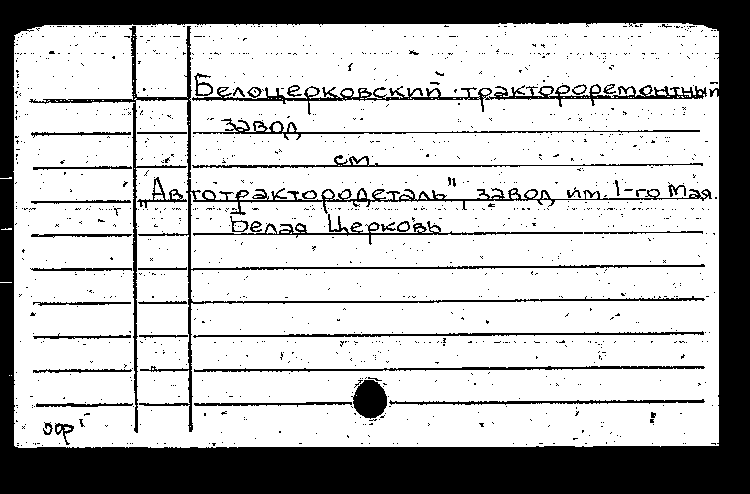 Белоцерковский тракторемонтный
завод
см.
„Автотрактородеталь", завод им. 1-го Мая.
Белая Церковь